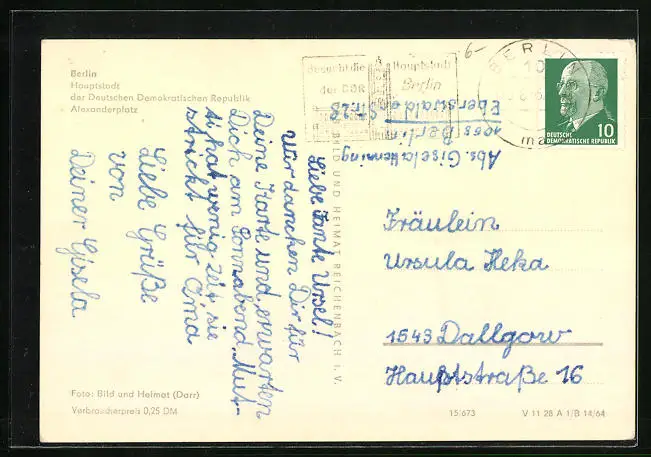 Berlin
Hauptstadt
der Deutschen Demokratischen Republik
Alexanderplatz
Besucht die
Hauptstadt
der DDR
Berlin
6-
BERLIN
10
DEUTSCHE
DEMOKRATISCHE REPUBLIK
10
Abs. Gisela Henning
1055 Berlin
Eberswalder Str. 28
Liebe Tante Ursel!
Wir danchen Dir für
Deine Karte und erwarten
Dich am Sonnabend. Mut-
ti hat wenig Zeit, sie
strickt für Oma
Liebe Grüße
von
Deiner Gisela
BILD UND HEIMAT REICHENBACH I. V.
Fräulein
Ursula Heka
1543 Dallgow
Hauptstraße 16
Foto: Bild und Heimat (Darr)
Verbraucherpreis 0,25 DM
15/673
V 11 28 A 1/B 14/64